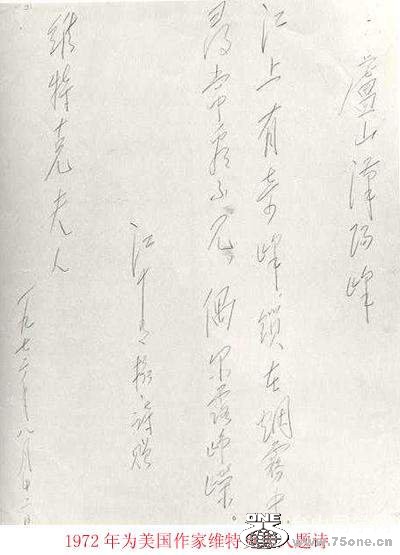 廬山漢阳峰
江上有奇峰,锁在烟霧中
尋常看不见,偶尔露峥嵘。
江青 摄、诗赠
维特克夫人
一九七二年八月二日
1972年为美国作家维特人题诗
ONE
www.75one.cn